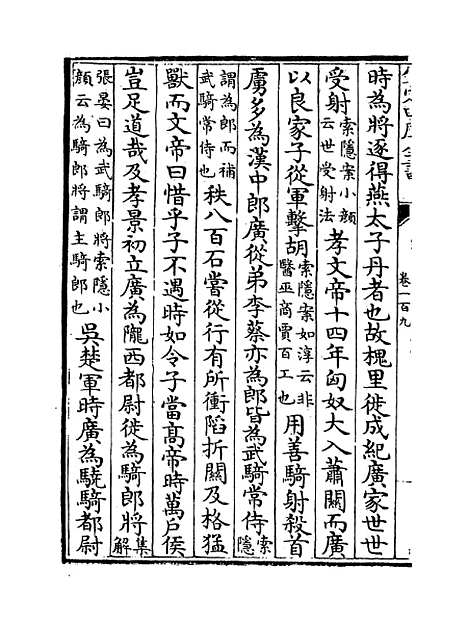 卷一百九
時為將逐得燕太子丹者也故槐里徙成紀廣家世世
受射索隱案小顏云世受射法孝文帝十四年匈奴大入蕭關而廣
以良家子從軍擊胡索隱案如淳云非醫巫商賈百工也用善騎射殺首
虜多為漢中郎廣從弟李蔡亦為郎皆為武騎常侍索隱
謂為郎而補武騎常侍也秩八百石嘗從行有所衝陷折關及格猛
獸而文帝曰惜乎子不遇時如令子當髙帝時萬户侯
豈足道哉及孝景初立廣為隴西都尉徙為騎郎將集解
張晏曰為武騎郎將索隱小顏云為騎郎將謂主騎郎也吳楚軍時廣為驍騎都尉